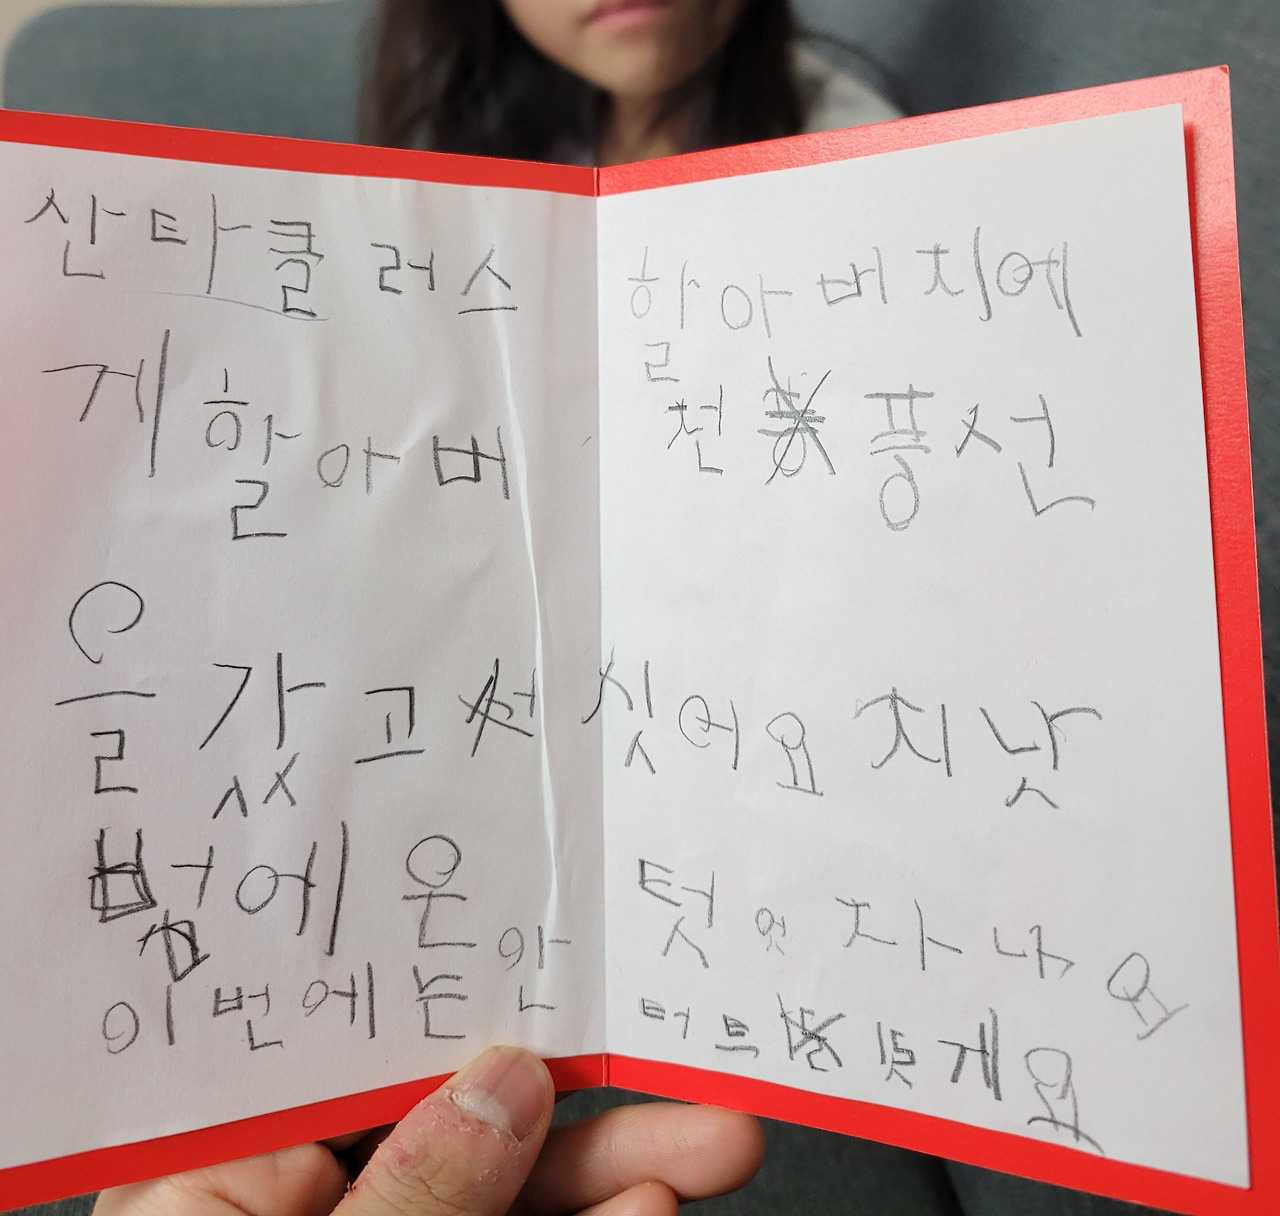 산타클러스 할아버지에
게 할아버 천 풍선
을 갔고 싯어요 지낫
범에 온 텃엇자나요
이번에는 안 터트 게요